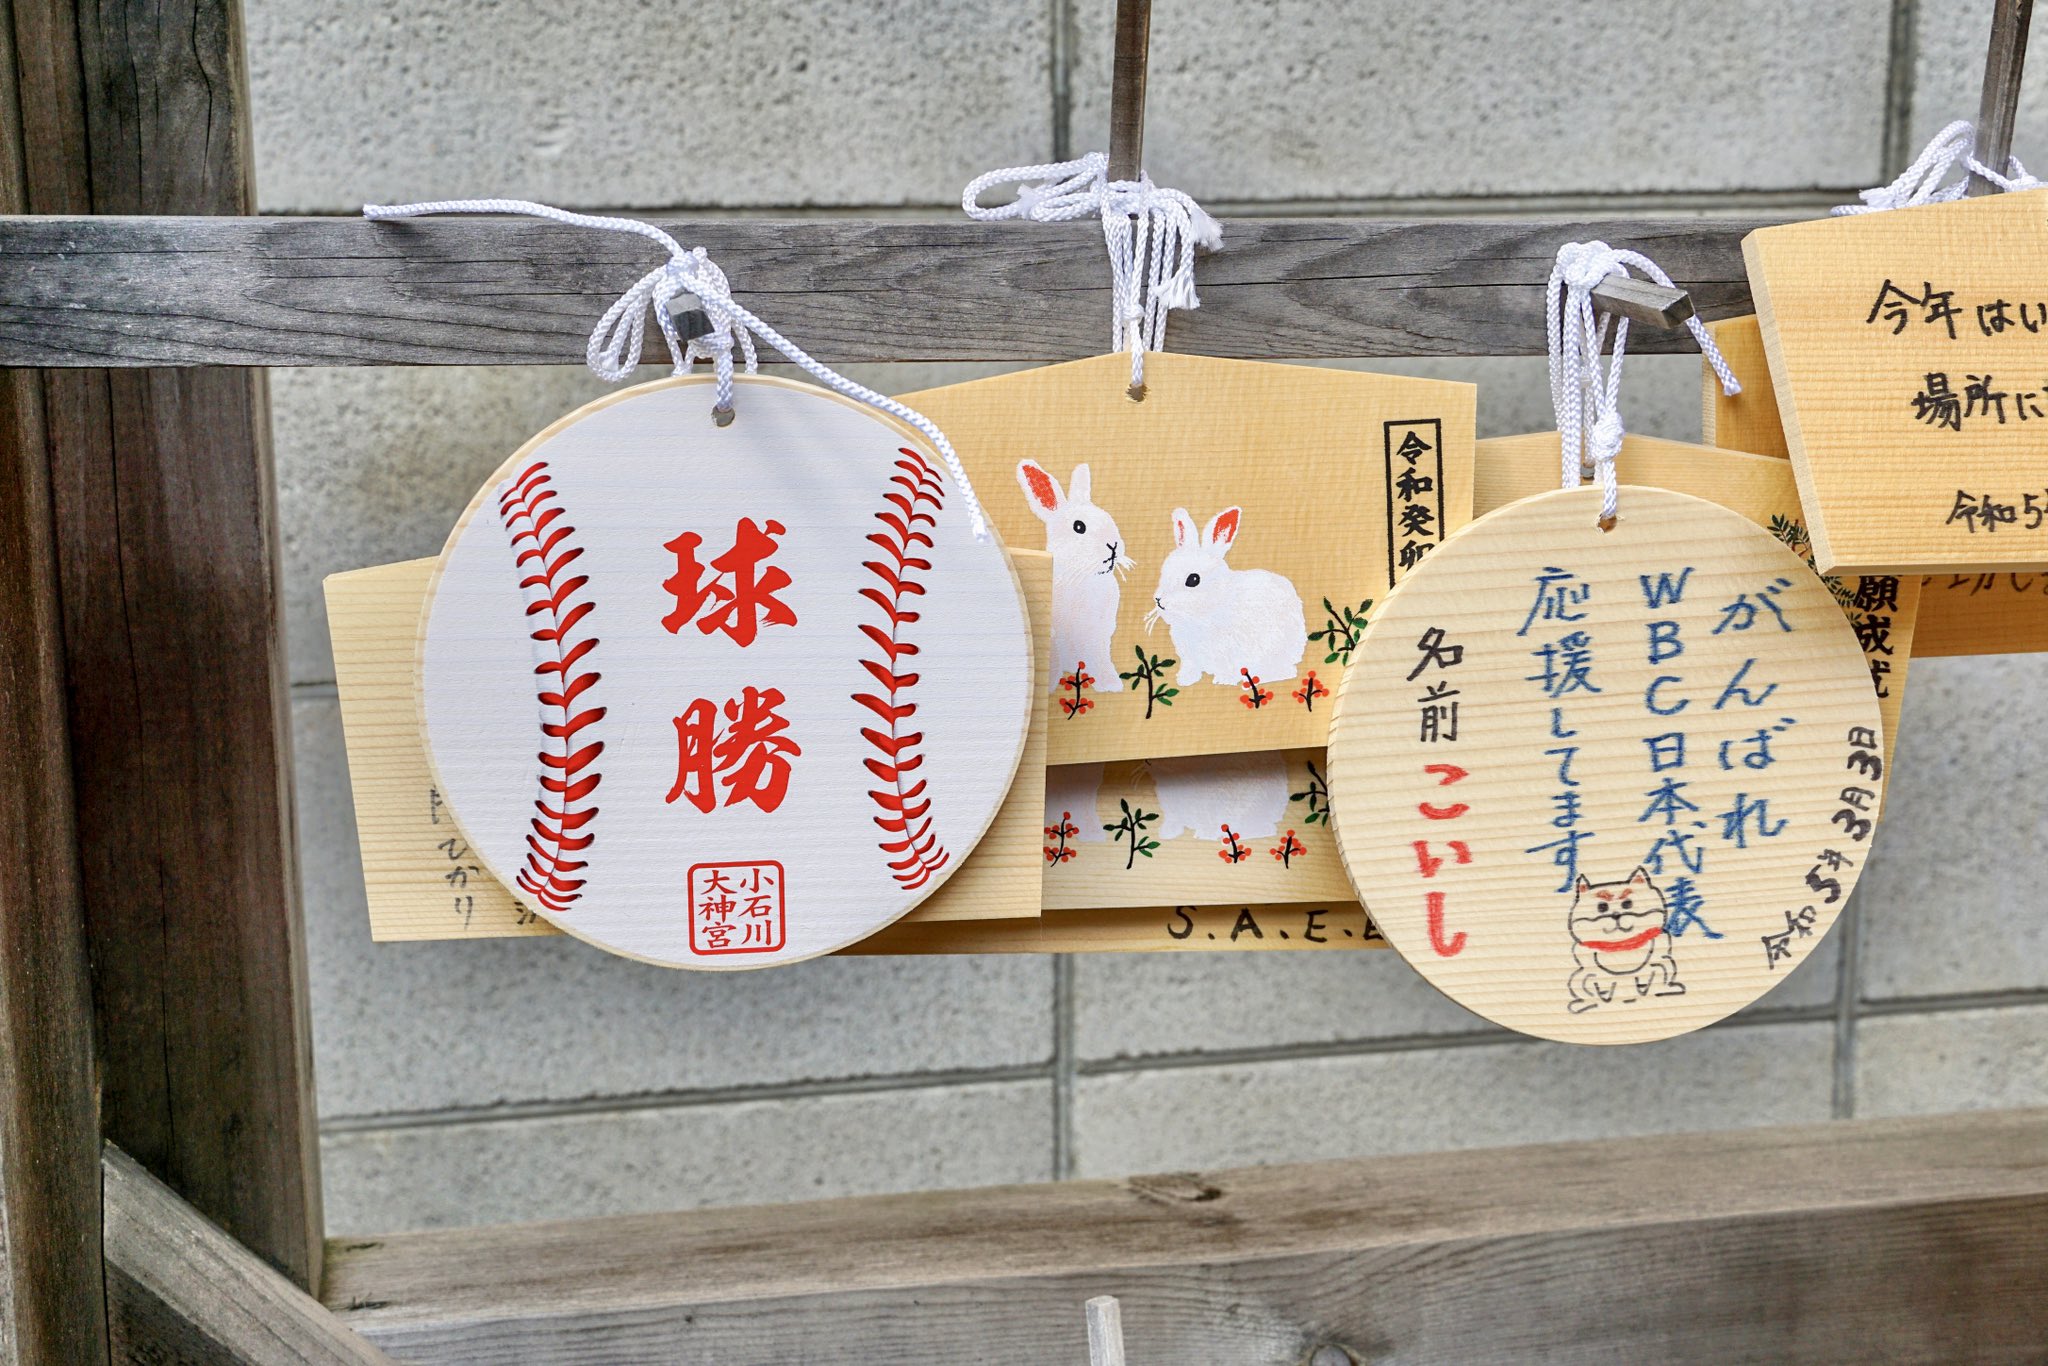 球勝
小石川
大神宮
令和癸卯
がんばれ
WBC日本代表
応援してます
名前 こいし
令和5年3月3日
今年はい
場所に
令和5年
願成就
S.A.E.E
ひかり